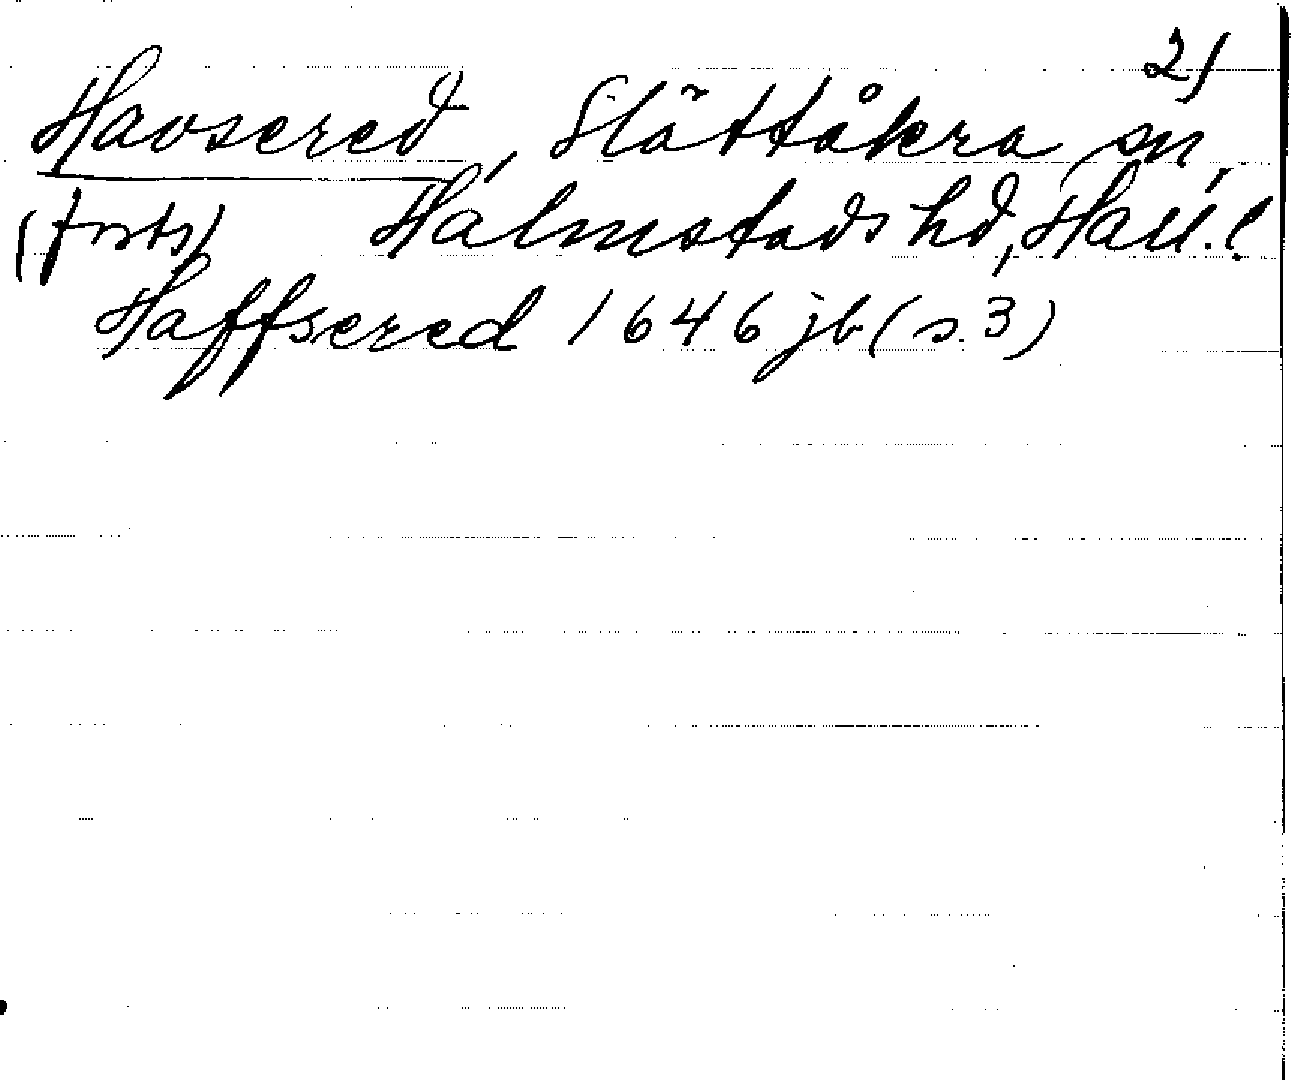 2)
Havsered, Slättåkra sn,
(forts) Halmstads hd, Hall. l
Haffsered 1646 jb (s. 3)